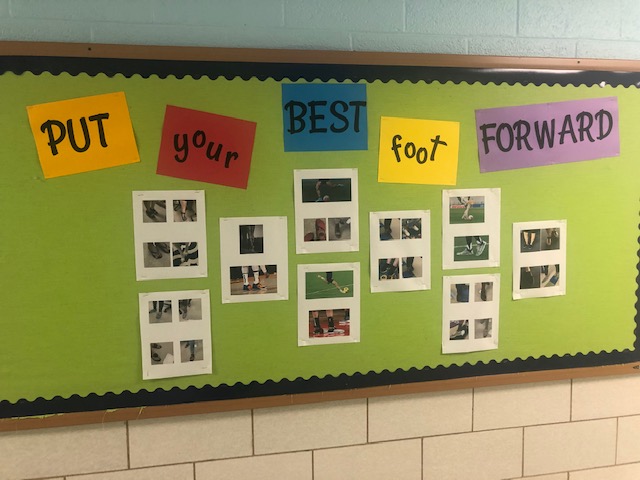 PUT your BEST foot FORWARD